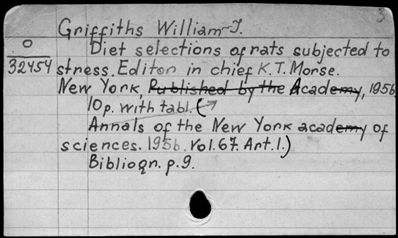 3
Griffiths William J.
O
32454
Diet selections of rats subjected to
stress. Editor in chief K.T. Morse.
New York Published by the Academy, 1956
10p. with tabl. (
Annals of the New York academy of
sciences. 1956. Vol. 67. Art. 1.)
Bibliogn. p. 9.